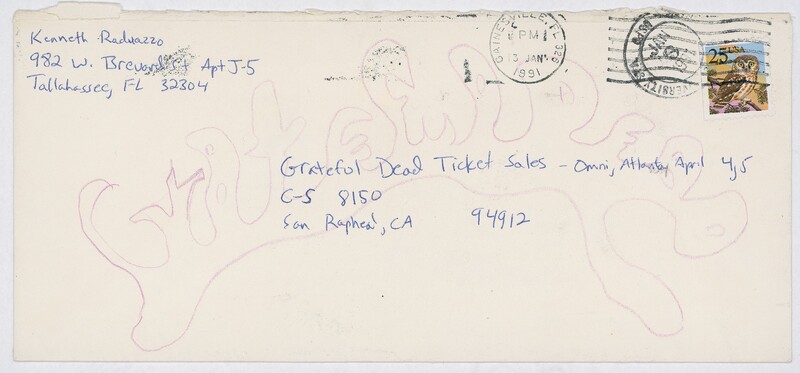 Kenneth Raduazzo
982 W. Brevard St Apt J-5
Tallahassee, FL 32304
GAINESVILLE, FL 326
PM
13 JAN
1991
25 USA
Grateful Dead Ticket Sales - Omni, Atlanta, April 4,5
C-S 8150
San Rapheal, CA 94912